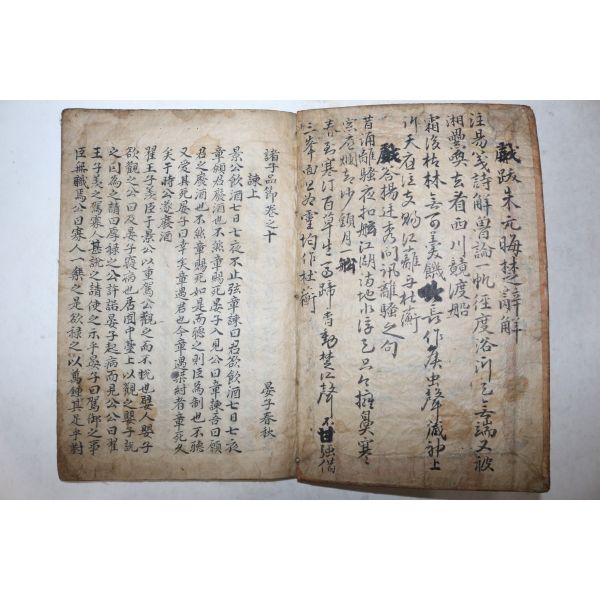 戱跋朱元晦楚辭解
注易箋詩解魯論一帆徑度浴沂已無端又被
湘纍喚去看西川競渡船
霜後枯林無可羹饑吟長作候虫聲藏神上
訴天應泣支賜江蘺与杜蘅
戱答楊廷秀問訊離騷之句
昔誦離騷夜扣舷江湖滿地水浮天只今擁鼻寒
窓底爛却沙頭月一船
春到寒汀百草生馬蹄香動楚江聲不甘強借
三峯面且爲靈均作杜蘅
諸子品節卷之十
諫上 晏子春秋
景公飮酒七日七夜不止弦章諫曰君欲飮酒七日七夜
章願君廢酒也不然章賜死晏子入見公曰章諫吾曰願
君之廢酒也不然章賜死如是而聽之則臣爲制也不聽
又愛其死晏子曰幸矣章遇君也令章遇桀紂者章死久
矣于時公遂廢酒
翟王子羡臣于景公以重駕公觀之而不悅也嬖人嬰子
欲觀之公曰及晏子寢病也居囿中臺上以觀之嬰子說
之因爲之請曰厚祿之公許諾晏子起病而見公公曰翟
王子羡之駕寡人甚說之請使之示乎晏子曰駕御之事
臣無職焉公曰寡人一樂之是欲祿之以萬鍾其足乎對